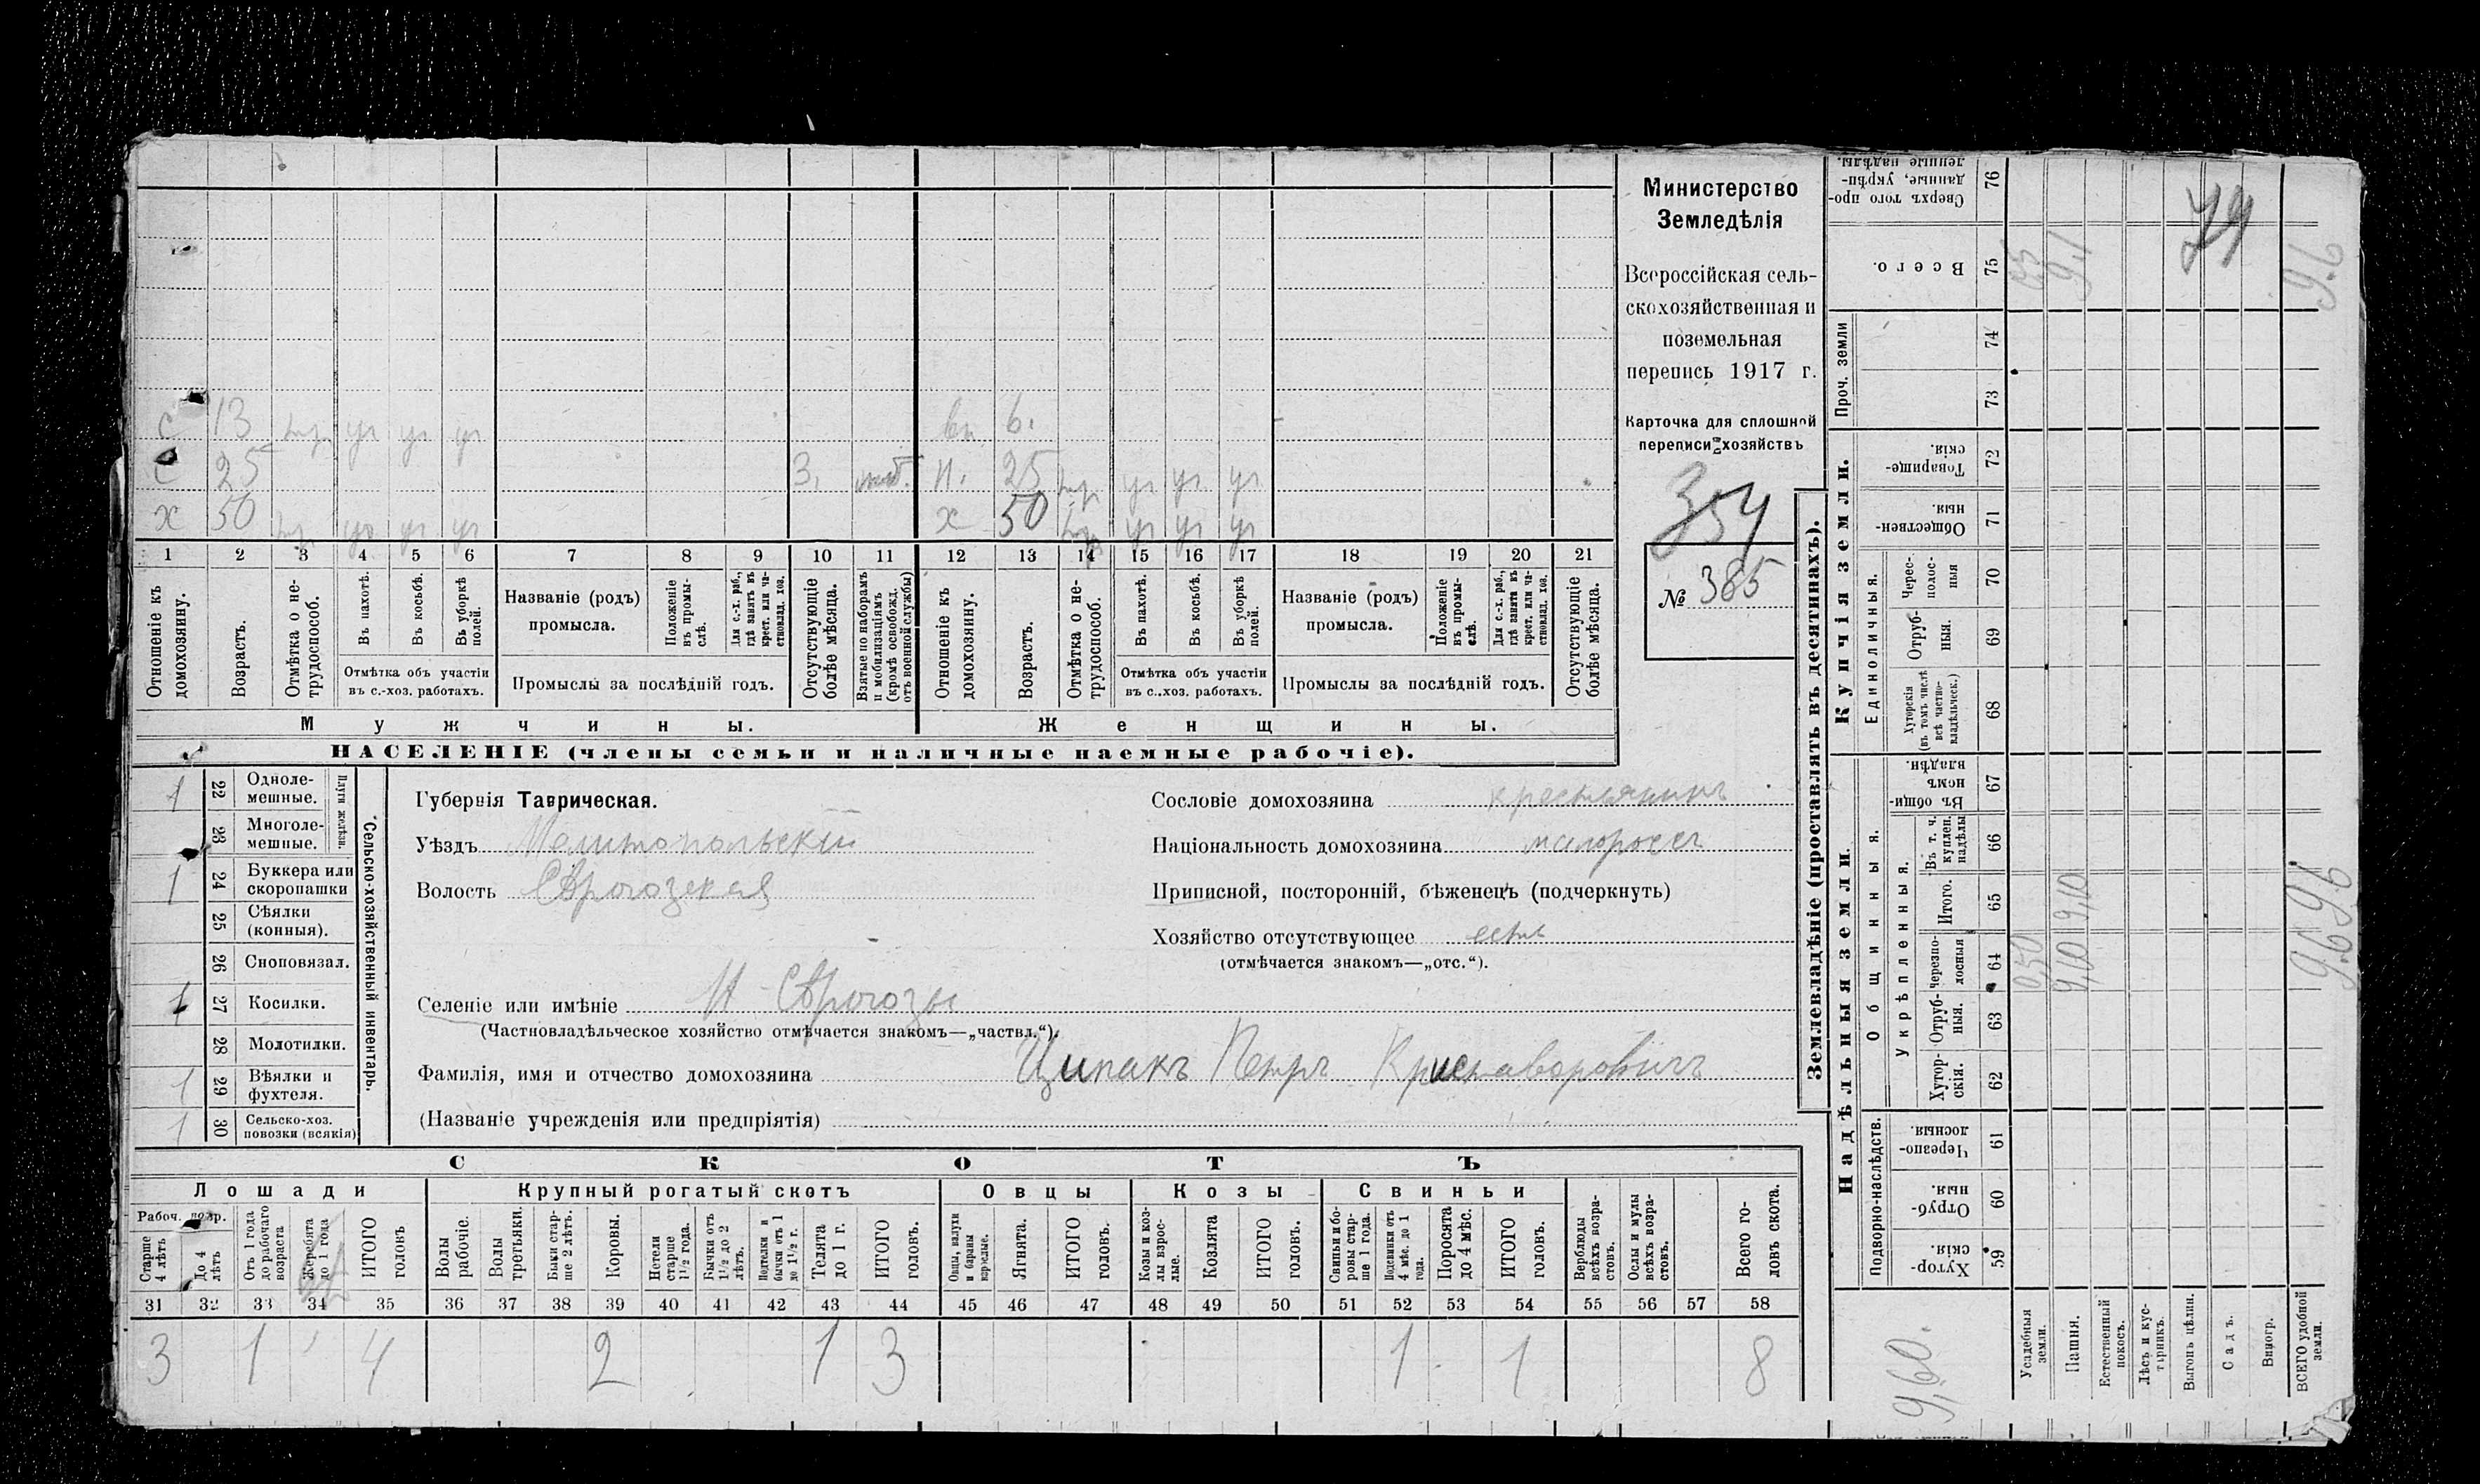 Министерство
Земледѣлія
Всероссійская сель-
скохозяйственная и
поземельная
перепись 1917 г.
Карточка для сплошной
переписи хозяйствъ
354
№ 385
с 13
вн. 6.
с 25 3.
н. 25
х 50
х 50
1 2 3 4 5 6 7 8 9 10 11 12 13 14 15 16 17 18 19 20 21
Отношеніе къ домохозяину.
Возрастъ.
Отмѣтка о не-трудоспособ.
Въ пахотѣ.
Въ косьбѣ.
Въ уборкѣ полей.
Отмѣтка объ участіи
въ с.-хоз. работахъ.
Названіе (родъ)
промысла.
Положеніе въ промы-слѣ.
Для с.-х. раб., гдѣ занятъ въ крест. или ча-стновлад. хоз.
Промыслы за послѣдній годъ.
Отсутствующіе болѣе мѣсяца.
Взятые по наборамъ и мобилизаціямъ (кромѣ освобожд. отъ военной службы)
Отношеніе къ домохозяину.
Возрастъ.
Отмѣтка о не-трудоспособ.
Въ пахотѣ.
Въ косьбѣ.
Въ уборкѣ полей.
Отмѣтка объ участіи
въ с.-хоз. работахъ.
Названіе (родъ)
промысла.
Положеніе въ промы-слѣ.
Для с.-х. раб., гдѣ занята въ крест. или ча-стновлад. хоз.
Промыслы за послѣдній годъ.
Отсутствующіе болѣе мѣсяца.
Мужчины.
Женщины.
НАСЕЛЕНІЕ (члены семьи и наличные наемные рабочіе).
1 22 Одноле-мешные.
23 Многоле-мешные.
Плуги желѣзн.
1 24 Буккера или скоропашки
25 Сѣялки (конныя).
26 Сноповязал.
1 27 Косилки.
28 Молотилки.
1 29 Вѣялки и фухтеля.
1 30 Сельско-хоз. повозки (всякія)
Сельско-хозяйственный инвентарь.
Губернія Таврическая.
Уѣздъ Мелитопольскій
Волость
Сословіе домохозяина крестьянинъ
Національность домохозяина малороссъ
Приписной, посторонній, бѣженецъ (подчеркнуть)
Хозяйство отсутствующее есть
(отмѣчается знакомъ—„отс.“).
Селеніе или имѣніе Н
(Частновладѣльческое хозяйство отмѣчается знакомъ—„частвл.“).
Фамилія, имя и отчество домохозяина Ципакъ Петръ Криставоровичъ
(Названіе учрежденія или предпріятія)
СКОТЪ
Лошади
Крупный рогатый скотъ
Овцы
Козы
Свиньи
Рабоч. пор.
Старше 4 лѣтъ
До 4 лѣтъ
Отъ 1 года до рабочаго возраста
Жеребята до 1 года
ИТОГО головъ
Волы рабочіе.
Волы третьяки.
Быки стар-ше 2 лѣтъ.
Коровы.
Нетели старше 1½ года.
Бычки отъ 1½ до 2 лѣтъ.
Подтелки и бычки отъ 1 до 1½ г.
Телята до 1 г.
ИТОГО головъ.
Овцы, валухи и бараны взрослые.
Ягнята.
ИТОГО головъ.
Козы и коз-лы взрос-лые.
Козлята
ИТОГО головъ.
Свиньи и бо-ровы стар-ше 1 года.
Подсвинки отъ 4 мѣс. до 1 года.
Поросята до 4 мѣс.
ИТОГО головъ.
Верблюды всѣхъ возра-стовъ.
Ослы и мулы всѣхъ возра-стовъ.
Всего го-ловъ скота.
31 32 33 34 35 36 37 38 39 40 41 42 43 44 45 46 47 48 49 50 51 52 53 54 55 56 57 58
3 1 4 2 1 3 1 1 8
Землевладѣніе (проставлять въ десятинахъ).
Надѣльныя земли.
Купчія земли.
Проч. земли
Подворно-наслѣдств.
Общинныя.
Укрѣпленныя.
Единоличныя.
Сверхъ того про-данные, укрѣп-ленные надѣлы. 76
Всего. 75
74
73
Товарище-скія. 72
Обществен-ныя. 71
Черес-полос-ныя 70
Отруб-ныя. 69
Хуторскія (въ томъ числѣ всѣ частно-владѣльческ.) 68
Въ общи-номъ владѣн. 67
Въ т. ч. куплен. надѣлы 66
Итого. 65
черезпо-лосныя 64
Отруб-ныя. 63
Хутор-скія. 62
Черезпо-лосныя. 61
Отруб-ныя. 60
Хутор-скія. 59
79
9.1
9.6
9,10
0,50
9,10
9.6
9.6
9,60.
Усадебныя земли.
Пашня.
Естественный покосъ.
Лѣсъ и кус-тарникъ.
Выгонъ цѣлин.
Садъ.
Виногр.
ВСЕГО удобной земли.